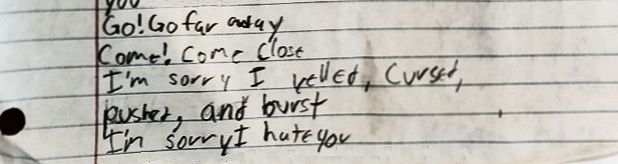 you
Go! Go far away
Come! Come close
I'm sorry I yelled, cursed,
pushed, and burst
I'm sorry I hate you